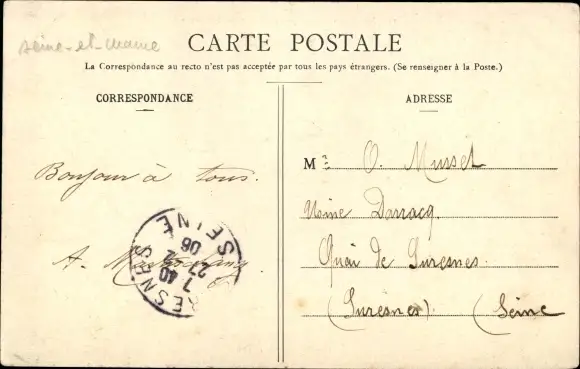 Seine-et-Marne
CARTE POSTALE
La Correspondance au recto n'est pas acceptée par tous les pays étrangers. (Se renseigner à la Poste.)
CORRESPONDANCE
Bonjour à tous.
A.
SURESNES
SEINE
7 40
27 2
06
ADRESSE
M r O. Musset
Usine Darracq
Quai de Suresnes.
(Suresnes). (Seine